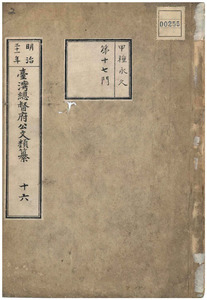 00256
甲種永久
第十七門
明治
三十一年
臺灣總督府公文類纂
十六